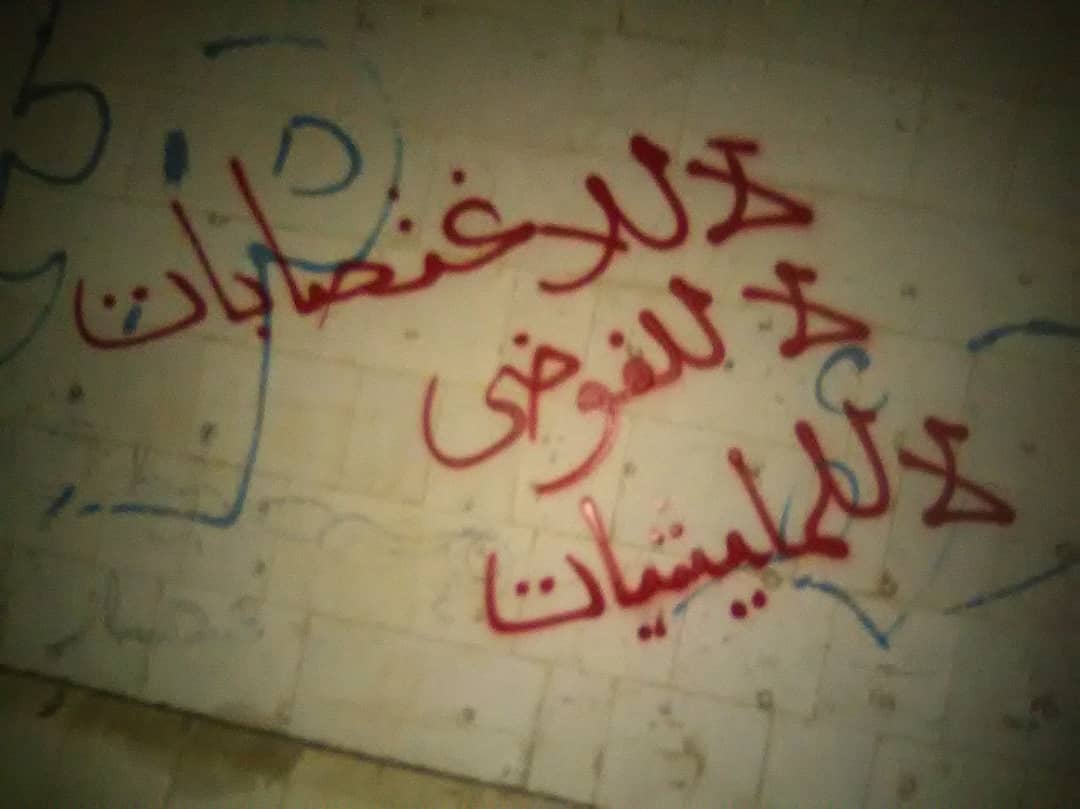 لا للاغتصابات
لا للفوضى
لا للمليشيات